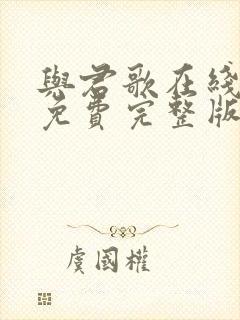 與君歌在綫
免費完整版
虞國權